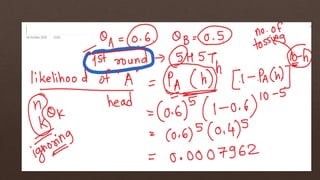 θA = 0.6 θB = 0.5
no. of tossing
1st round → 5H5T
likelihood of A = (PA(h))^h [1-PA(h)]^10-h
head
n
K θK
ignoring
= (0.6)^5 (1-0.6)^10-5
= (0.6)^5 (0.4)^5
= 0.0007962